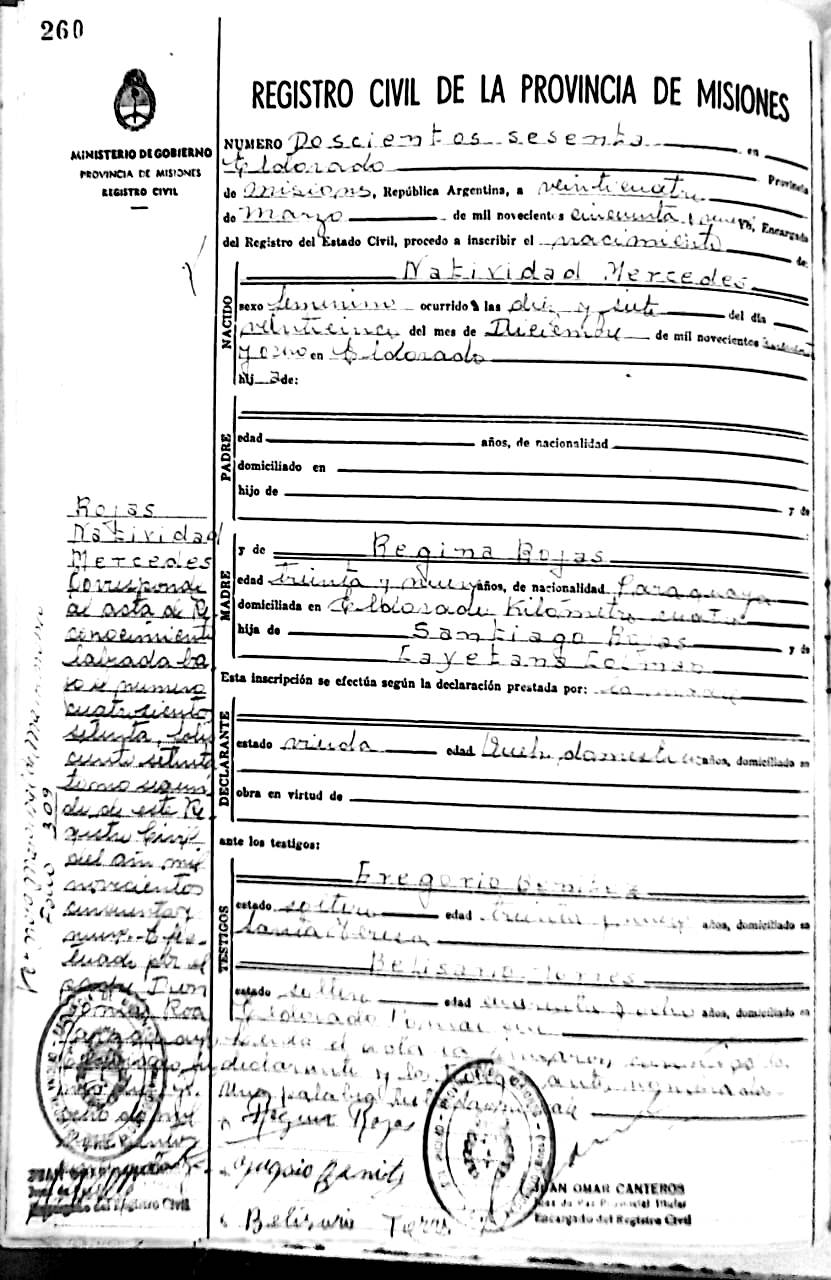 260
REGISTRO CIVIL DE LA PROVINCIA DE MISIONES
MINISTERIO DE GOBIERNO
PROVINCIA DE MISIONES
REGISTRO CIVIL
NUMERO Doscientos sesenta en
Eldorado Provincia
de Misiones, República Argentina, a veinticuatro
de Marzo de mil novecientos cincuenta y nueve Yo, Encargado
del Registro del Estado Civil, procedo a inscribir el nacimiento de:
NACIDO
Natividad Mercedes
sexo femenino ocurrido a las diez y siete del día
veinticinco del mes de Diciembre de mil novecientos
y ocho en Eldorado
hij a de:
PADRE
edad años, de nacionalidad
domiciliado en
hijo de y de
MADRE
y de Regina Rojas
edad treinta y nueve años, de nacionalidad Paraguaya
domiciliada en Eldorado Kilómetro cuatro
hija de Santiago Rojas y de
Cayetana Colman
Esta inscripción se efectúa según la declaración prestada por: la madre
DECLARANTE
estado viuda edad Queh. domesticos años, domiciliado en
obra en virtud de
ante los testigos:
TESTIGOS
Gregorio Benitez
estado soltero edad treinta y nueve años, domiciliado en
Santa Teresa
Belisario Torres
estado soltero edad cuarenta y ocho años, domiciliado en
Eldorado
el acta la
declarante y los
Regina Rojas
Benitez
Belisario Torres
JUAN OMAR CANTEROS
Juez de Paz Provincial Titular
Encargado del Registro Civil
Rojas
Natividad
Mercedes
Corresponde
al acta de Re
conocimiento
labrada ba
jo el numero
cuatrociento
setenta, folio
ciento setenta
tomo segun
do de este Re
gistro Civil
del año mil
novecientos
cincuenta y
nueve- efec
tuado por el
padre
Roa
309
Encargado del Registro Civil